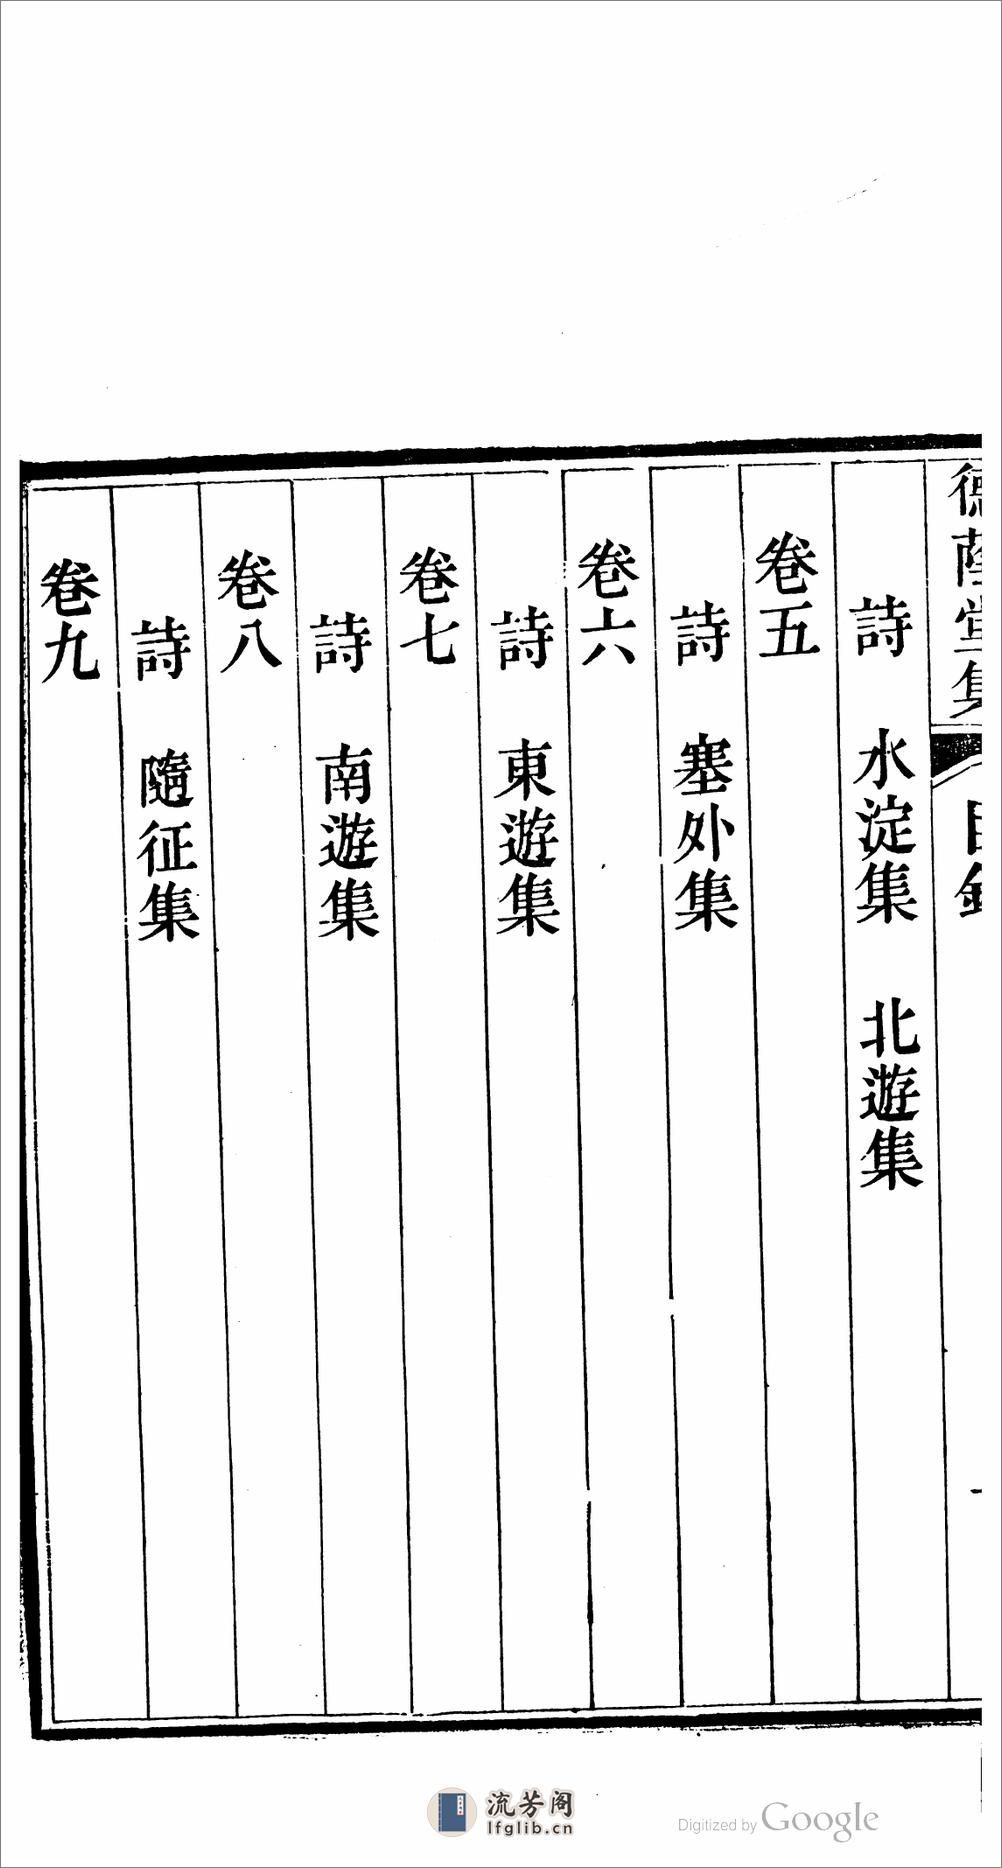 德蔭堂集 目錄 一
詩 水淀集 北遊集
卷五
詩 塞外集
卷六
詩 東遊集
卷七
詩 南遊集
卷八
詩 隨征集
卷九
流芳阁
lfglib.cn
Digitized by Google